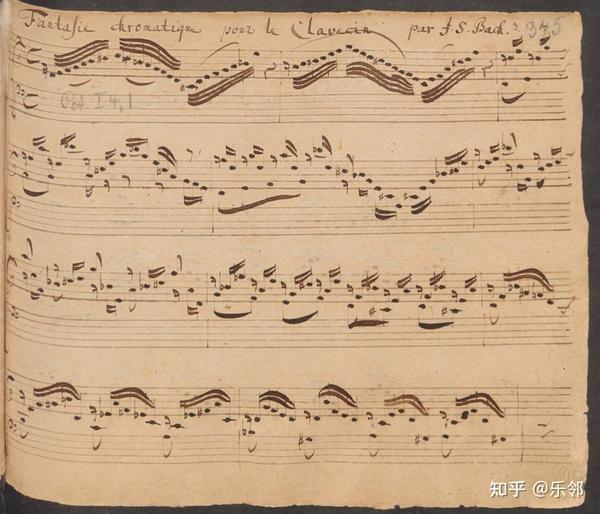 Fantasie chromatique pour le Clavecin par J. S. Bach. 345
知乎 @乐邻